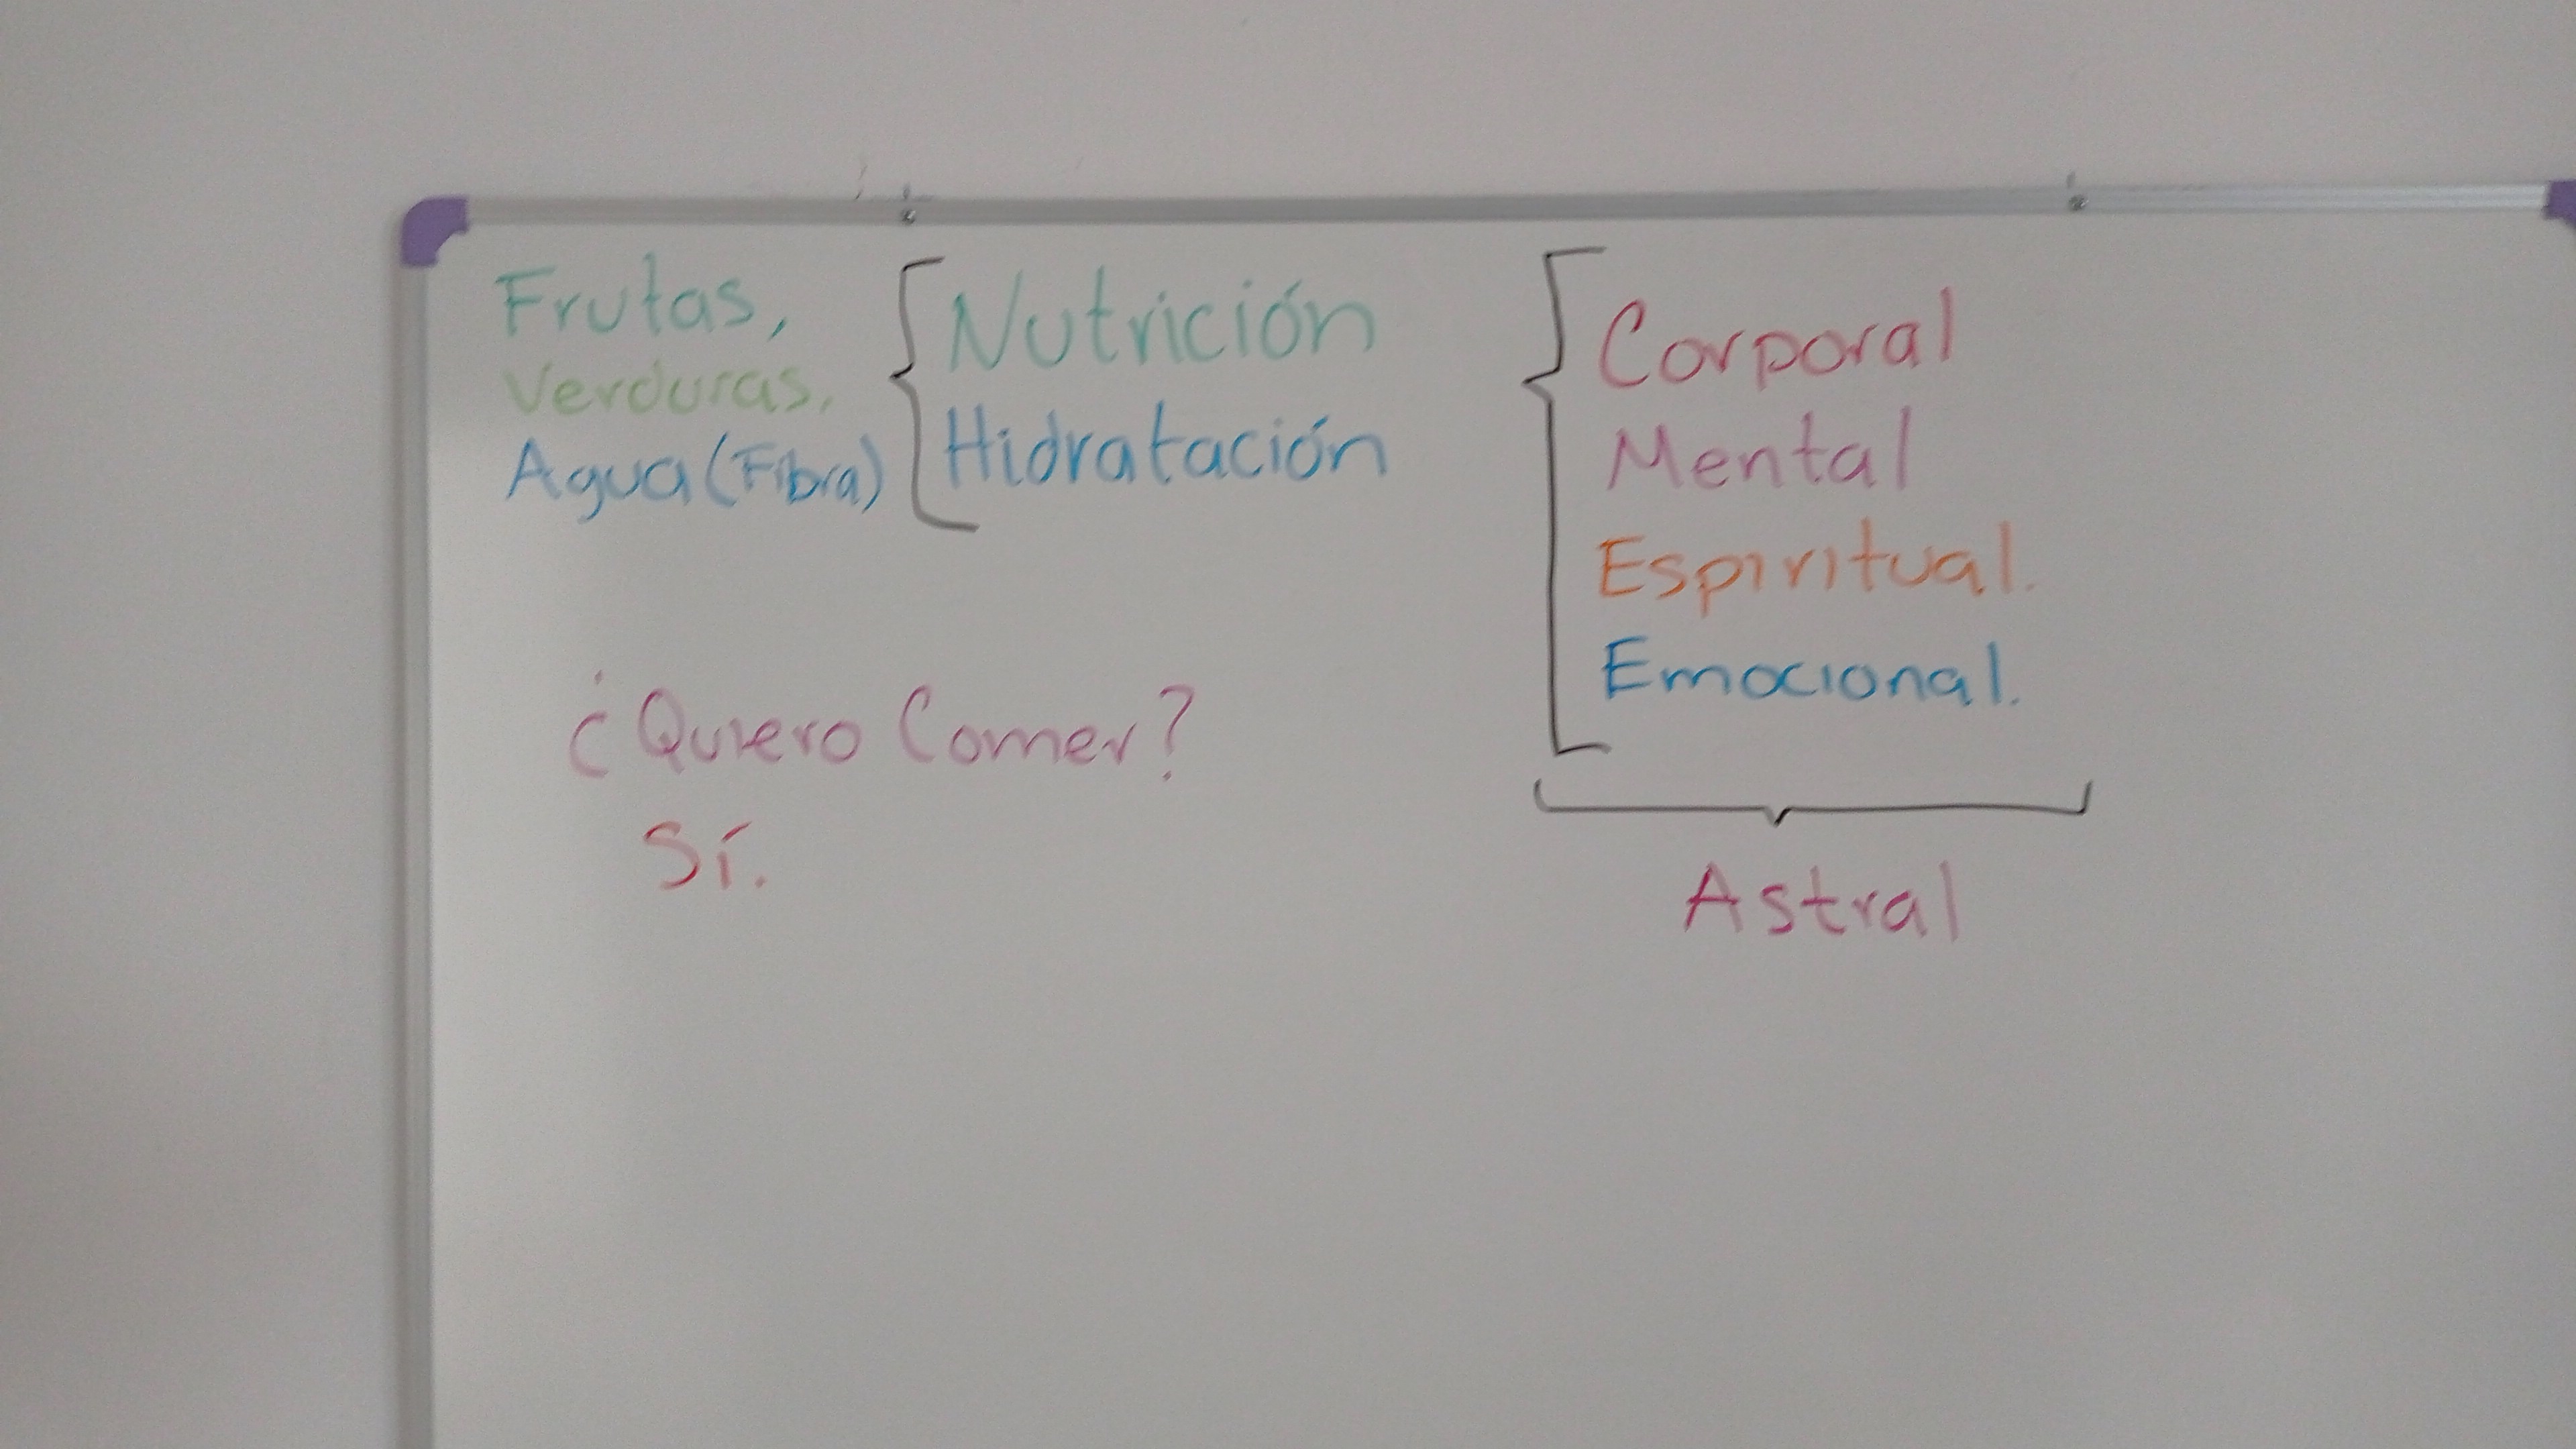 Frutas,
Verduras,
Agua (Fibra)
Nutrición
Hidratación
Corporal
Mental
Espiritual.
Emocional.
Astral
¿Quiero Comer?
Sí.